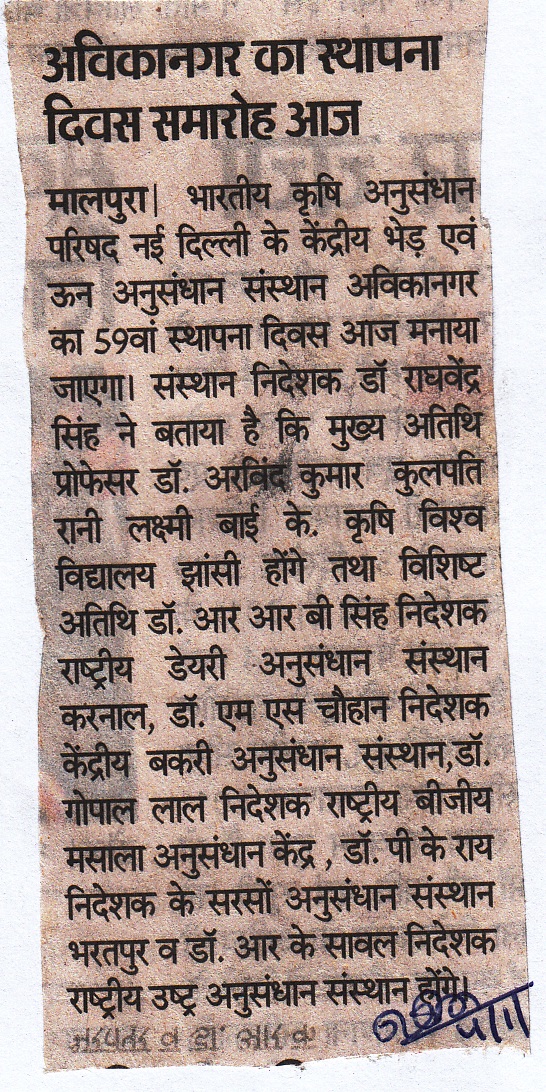 अविकानगर का स्थापना
दिवस समारोह आज
मालपुरा| भारतीय कृषि अनुसंधान
परिषद नई दिल्ली के केंद्रीय भेड़ एवं
ऊन अनुसंधान संस्थान अविकानगर
का 59वां स्थापना दिवस आज मनाया
जाएगा। संस्थान निदेशक डॉ राघवेंद्र
सिंह ने बताया है कि मुख्य अतिथि
प्रोफेसर डॉ. अरविंद कुमार कुलपति
रानी लक्ष्मी बाई के. कृषि विश्व
विद्यालय झांसी होंगे तथा विशिष्ट
अतिथि डॉ. आर आर बी सिंह निदेशक
राष्ट्रीय डेयरी अनुसंधान संस्थान
करनाल, डॉ. एम एस चौहान निदेशक
केंद्रीय बकरी अनुसंधान संस्थान,डॉ.
गोपाल लाल निदेशक राष्ट्रीय बीजीय
मसाला अनुसंधान केंद्र , डॉ. पी के राय
निदेशक के सरसों अनुसंधान संस्थान
भरतपुर व डॉ. आर के सावल निदेशक
राष्ट्रीय उष्ट्र अनुसंधान संस्थान होंगे।